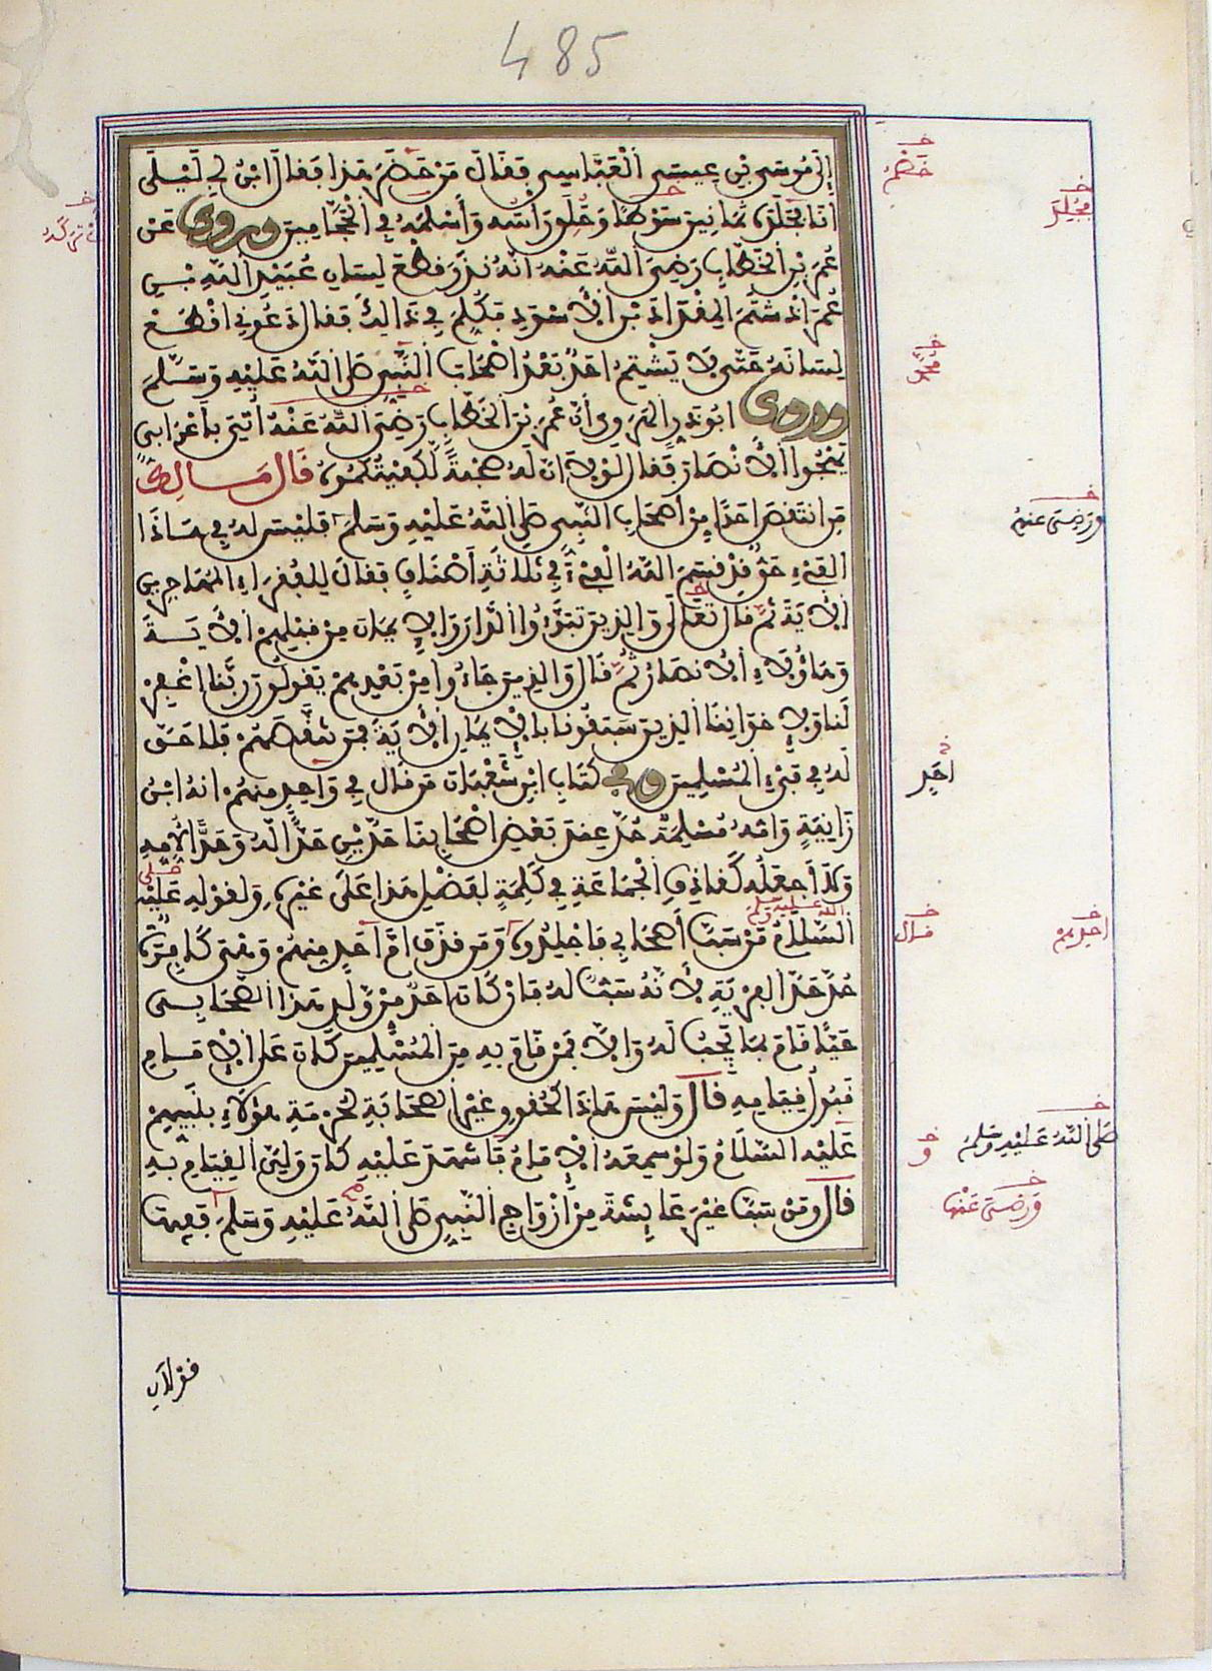 485
إِلَى مُوسَى بْنِ عِيسَى الْعَبَّاسِيِّ فَقَالَ مَنْ حَضَرَ هَذَا فَقَالَ ابْنُ أَبِي لَيْلَى
أَنَا فَجُلِدَ ثَمَانِينَ سَوْطًا وَحُلِقَ رَأْسُهُ وَأَسْلَمَهُ فِي الْحَجَّامِينَ وروي عَنْ
عُمَرَ بْنِ الْخَطَّابِ رَضِيَ اللَّهُ عَنْهُ أَنَّهُ نَذَرَ قَطْعَ لِسَانِ عُبَيْدِ اللَّهِ بْنِ
عُمَرَ إِذْ شَتَمَ الْمِقْدَادَ بْنَ الْأَسْوَدِ فَكُلِّمَ فِي ذَالِكَ فَقَالَ دَعُونِي أَقْطَعْ
لِسَانَهُ حَتَّى لَا يَشْتِمَ أَحَدٌ بَعْدُ أَصْحَابَ النَّبِيِّ صَلَّى اللَّهُ عَلَيْهِ وَسَلَّمَ
وروى أَبُو ذَرٍّ الْهَرَوِيُّ أَنَّ عُمَرَ بْنَ الْخَطَّابِ رَضِيَ اللَّهُ عَنْهُ أُتِيَ بِأَعْرَابِيٍّ
يَهْجُو الْأَنْصَارَ فَقَالَ لَوْلَا أَنَّ لَهُ صُحْبَةً لَكَفَيْتُكُمُوهُ قَالَ مَالِكٌ
مَنِ انْتَقَصَ أَحَدًا مِنْ أَصْحَابِ النَّبِيِّ صَلَّى اللَّهُ عَلَيْهِ وَسَلَّمَ فَلَيْسَ لَهُ فِي هَاذَا
الْفَيْءِ حَقٌّ قَدْ قَسَمَ اللَّهُ الْفَيْءَ فِي ثَلَاثَةِ أَصْنَافٍ فَقَالَ لِلْفُقَرَاءِ الْمُهَاجِرِينَ
الْأَيَةَ ثُمَّ قَالَ تَعَالَى وَالَّذِينَ تَبَوَّءُوا الدَّارَ وَالْإِيمَانَ مِنْ قَبْلِهِمْ الْأَيَةَ
وَهَاؤُلَاءِ الْأَنْصَارُ ثُمَّ قَالَ وَالَّذِينَ جَاءُوا مِنْ بَعْدِهِمْ يَقُولُونَ رَبَّنَا اغْفِرْ
لَنَا وَلِإِخْوَانِنَا الَّذِينَ سَبَقُونَا بِالْإِيمَانِ الْأَيَةَ فَمَنْ تَنَقَّصَهُمْ فَلَا حَقَّ
لَهُ فِي فَيْءِ الْمُسْلِمِينَ وفي كِتَابِ ابْنِ شَعْبَانَ مَنْ قَالَ فِي وَاحِدٍ مِنْهُمْ أَنَّهُ ابْنُ
زَانِيَةٍ وَأُمُّهُ مُسْلِمَةٌ حُدَّ عِنْدَ بَعْضِ أَصْحَابِنَا حَدَّيْنِ حَدًّا لَهُ وَحَدًّا لِأُمِّهِ
وَلَا أَجْعَلُهُ كَقَاذِفِ الْجَمَاعَةِ فِي كَلِمَةٍ لِفَضْلِ هَذَا عَلَى غَيْرِهِ وَلِقَوْلِهِ عَلَيْهِ
صلى الله عليه وسلم
السَّلَامُ مَنْ سَبَّ أَصْحَابِي فَاجْلِدُوهُ وَمَنْ قَذَفَ أُمَّ أَحَدٍ مِنْهُمْ وَهْيَ كَافِرَةٌ
حُدَّ حَدَّ الْفِرْيَةِ لِأَنَّهُ سَبٌّ لَهُ فَإِنْ كَانَ أَحَدٌ مِنْ وَلَدِ هَذَا الصَّحَابِيِّ
حَيًّا قَامَ بِمَا يَجِبُ لَهُ وَإِلَّا فَمَنْ قَامَ بِهِ مِنَ الْمُسْلِمِينَ كَانَ عَلَى الْإِمَامِ
قَبُولُ قِيَامِهِ قَالَ وَلَيْسَ هَاذَا لِحُقُوقِ غَيْرِ الصَّحَابَةِ لِحُرْمَةِ هَؤُلَاءِ بِنَبِيِّهِمْ
عَلَيْهِ السَّلَامُ وَلَوْ سَمِعَهُ الْإِمَامُ فَأَشْهَدَ عَلَيْهِ كَانَ وَلِيَّ الْقِيَامِ بِهِ
قَالَ وَمَنْ سَبَّ غَيْرَ عَائِشَةَ مِنْ أَزْوَاجِ النَّبِيِّ صَلَّى اللَّهُ عَلَيْهِ وَسَلَّمَ فَفِيهَا
خ
خَصْمُ
خ
فَجُلِدَ
خ
مُحَمَّدٍ
خ
وَرَضِيَ عَنْهُ
خ
أَحَدٍ
خ
قَالَ
خ
أَحَدِهِمْ
خ
صَلَّى اللَّهُ عَلَيْهِ وَسَلَّمَ
خ
وَرَضِيَ عَنْهَا
قولان